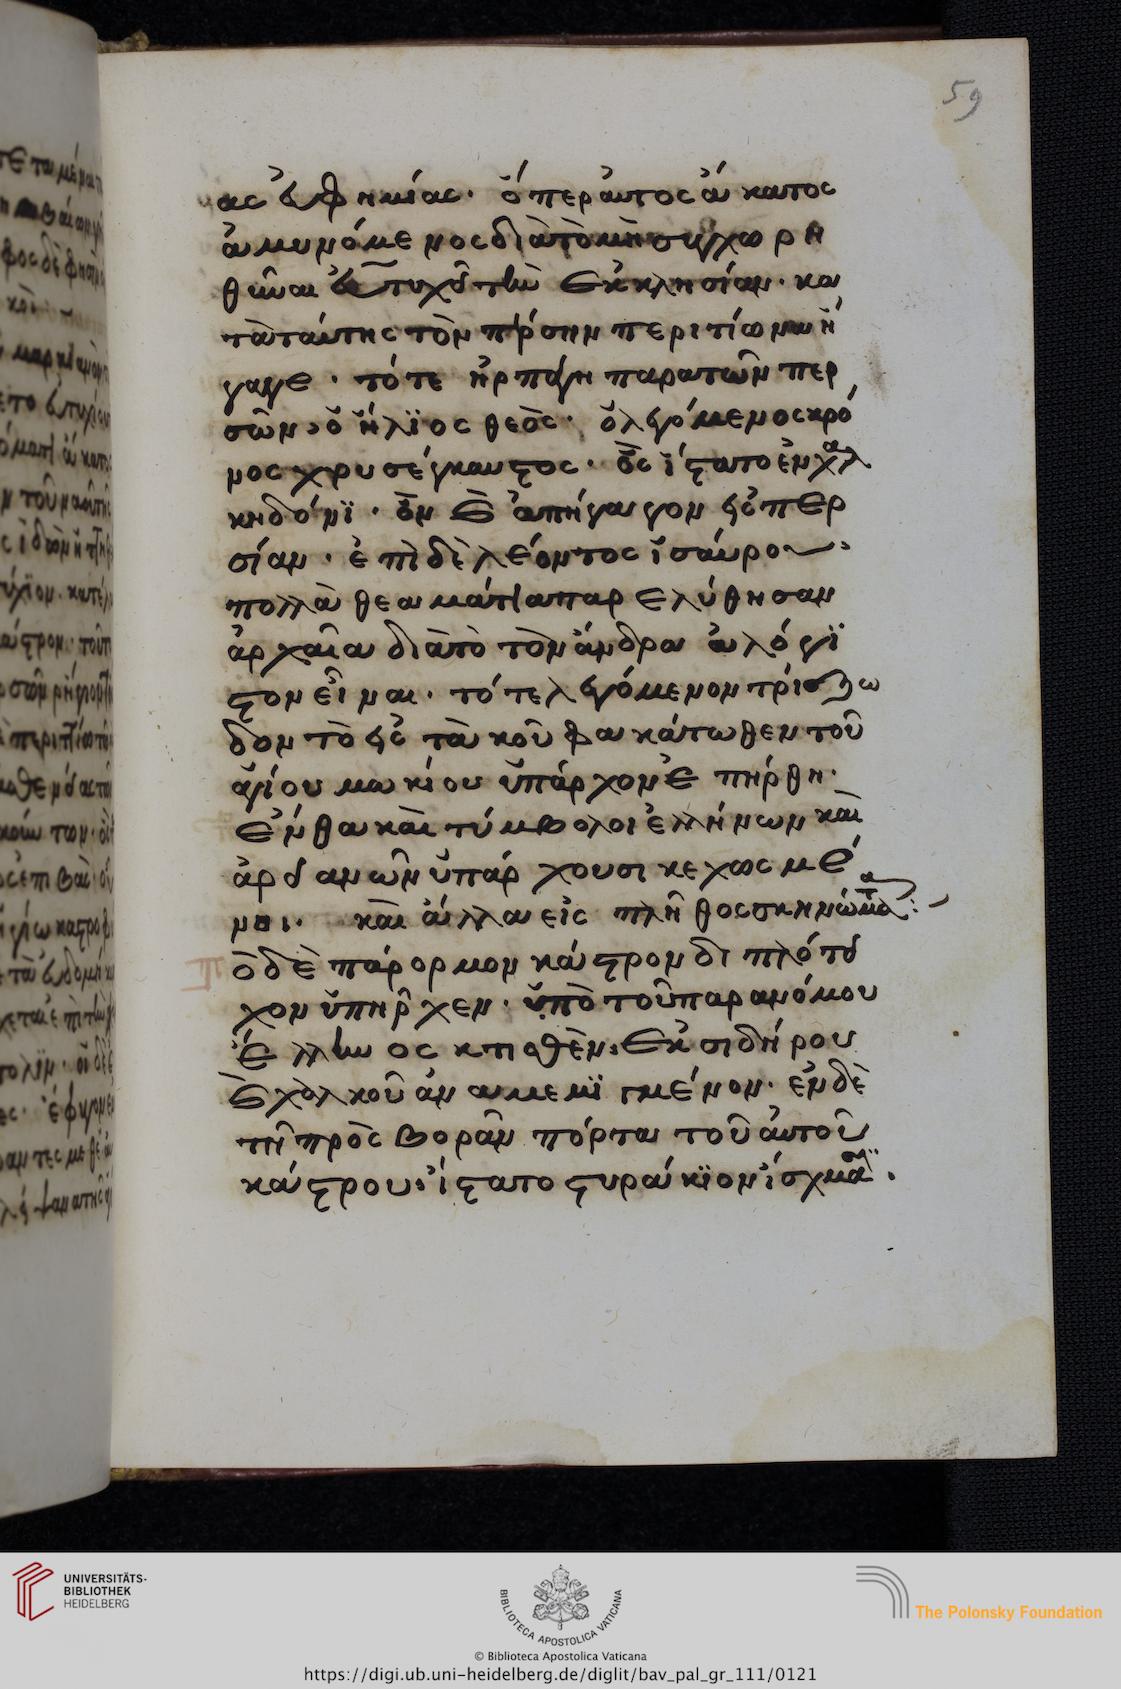 59
ας ἐυφημίας· ὅπερ ἀυτος ἄκατος
ἀμυνόμενος διὰ τὸ μὴ συγχωρη
θῆναι ἐυτυχοῦ τὴν ἐκκλησίαν· κα
τὰ ταύτης τὸν πέρσην περιτίωνα ἤ
γαγε· τότε ἡρπάγη παρα τῶν περ
σῶν, ὁ ἥλϊος θεὸς· ὁ λεγόμενος κρό
νος χρυσέγκαυστος· ὃς ἵστατο ἐν χαλ
κηδόνϊ· ὃν καὶ ἀπήγαγον εἰς περ
σίαν· ἐπὶ δὲ λέοντος ἰσάυρου
πολλὰ θεάματα παρελύθησαν
ἀρχαῖα διὰ τὸ τὸν ἄνδρα ἀλόγϊ
στον εἶναι· τότε λεγόμενον τρίσζω
δον τὸ εἰς τὰ κοῦφα κάτωθεν τοῦ
ἁγίου μωκίου ὑπάρχον ἐπήρθη·
ἔνθα καὶ τύμβολοι ἐλλήνων καὶ
ἀρειανῶν ὑπάρχουσι κεχωσμέ
νοι· καὶ ἄλλα εἰς πλῆθος σκηνώματα:
ὁ δὲ πάρορμον κάστρον διπλότοι
χον ὑπῆρχεν· ὑπὸ τοῦ παρανόμου
ἕλληνος κτισθὲν: ἐκ σιδήρου
καὶ χαλκοῦ ἀναμεμϊγμένον· ἐν δὲ
τῆ πρὸς βορᾶν πόρτα τοῦ ἀυτοῦ
κάστρου· ἵστατο στυράκϊον ἴσχμα
UNIVERSITÄTS-
BIBLIOTHEK
HEIDELBERG
BIBLIOTECA APOSTOLICA VATICANA
The Polonsky Foundation
© Biblioteca Apostolica Vaticana
https://digi.ub.uni-heidelberg.de/diglit/bav_pal_gr_111/0121